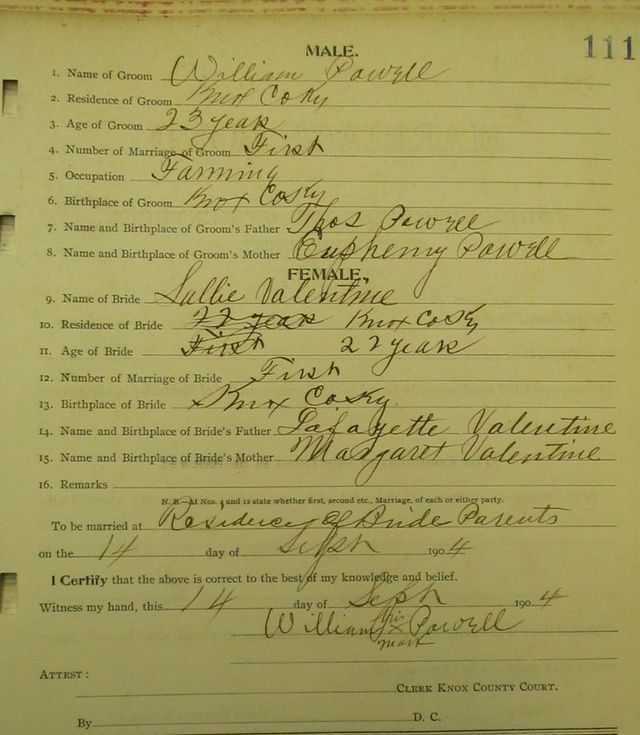 111
MALE.
1. Name of Groom William Powell
2. Residence of Groom Knox Co Ky
3. Age of Groom 23 years
4. Number of Marriage of Groom First
5. Occupation Farming
6. Birthplace of Groom Knox Co Ky
7. Name and Birthplace of Groom's Father Thos Powell
8. Name and Birthplace of Groom's Mother Euphemy Powell
FEMALE.
9. Name of Bride Sallie Valentine
10. Residence of Bride 22 years Knox Co Ky
11. Age of Bride First 22 years
12. Number of Marriage of Bride First
13. Birthplace of Bride Knox Co Ky.
14. Name and Birthplace of Bride's Father Lafayette Valentine
15. Name and Birthplace of Bride's Mother Margaret Valentine
16. Remarks
N. B.—At Nos. 4 and 12 state whether first, second etc., Marriage, of each or either party.
To be married at Residence of Bride Parents
on the 14 day of Sept 1904
I Certify that the above is correct to the best of my knowledge and belief.
Witness my hand, this 14 day of Sept 1904
William his x mark Powell
ATTEST:
CLERK KNOX COUNTY COURT.
By D. C.